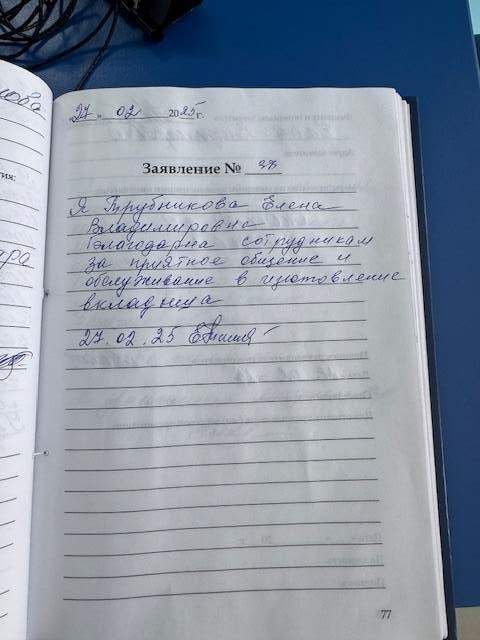 27 . 02 2025г.
Заявление № 38
Я Трубникова Елена
Владимировна
благодарна сотрудникам
за приятное общение и
обслуживание в изготовление
вкладыша
27.02.25
77